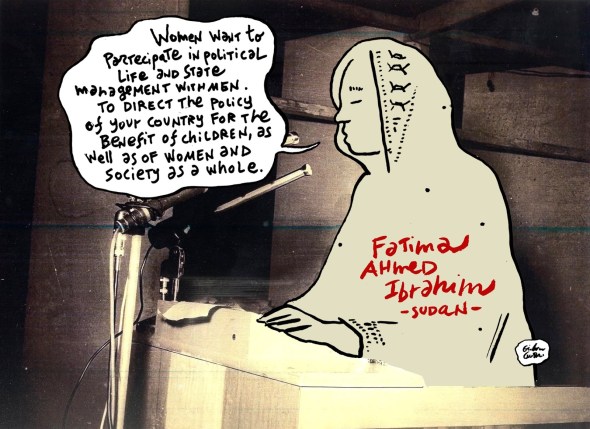 Women want to
Partecipate in political
Life and state
management with men.
To direct the policy
of your country for the
Benefit of children, as
well as of women and
society as a whole.
Fatima
Ahmed
Ibrahim
-SUDAN-